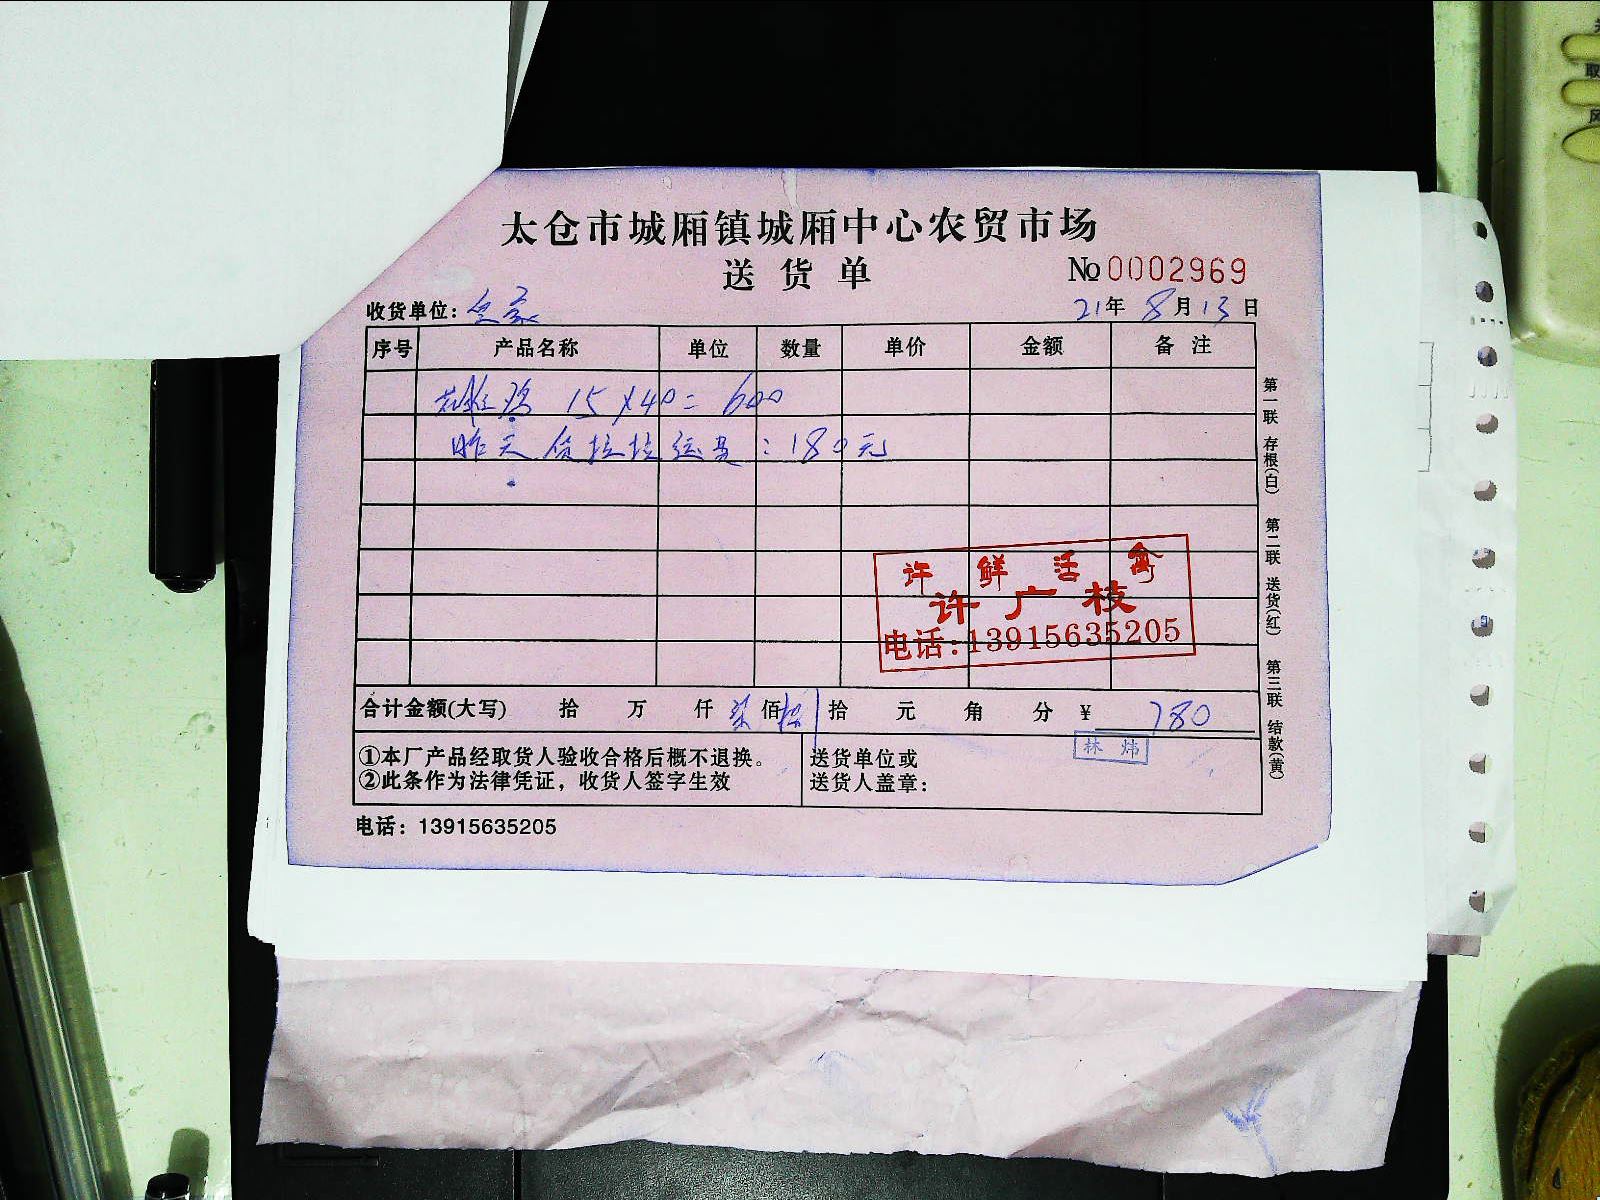 太仓市城厢镇城厢中心农贸市场
送货单
No 0002969
收货单位:
21年 8月 13日
序号 产品名称 单位 数量 单价 金额 备注
鸡 15×40=600
昨天货拉拉运费:180元
许鲜活禽
许广枝
电话:13915635205
合计金额(大写) 拾 万 仟 柒佰捌拾 元 角 分 ¥ 780
①本厂产品经取货人验收合格后概不退换。
②此条作为法律凭证，收货人签字生效
送货单位或
送货人盖章:
林炜
电话: 13915635205
第一联 存根(白) 第二联 送货(红) 第三联 结款(黄)